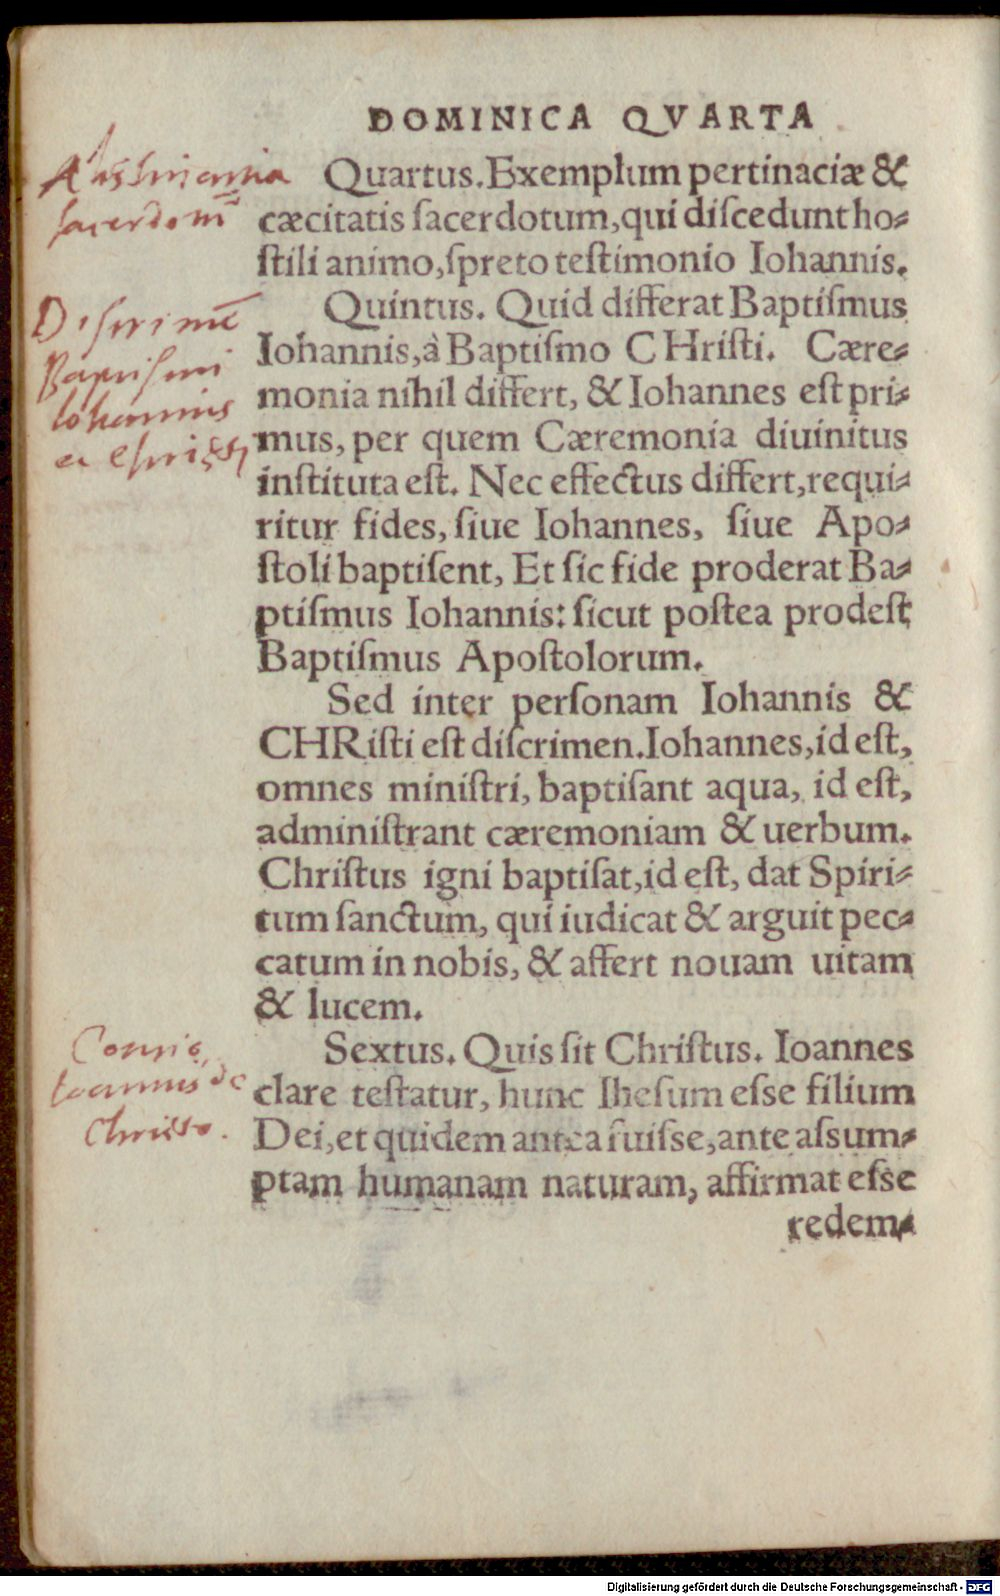 DOMINICA QVARTA
sacerdotũ
Quartus. Exemplum pertinaciæ &
cæcitatis ſacerdotum, qui diſcedunt ho⸗
ſtili animo, ſpreto teſtimonio Iohannis.
Diſcrimẽ
Baptiſmi
Iohannis
et Chriſti
Quintus. Quid differat Baptiſmus
Iohannis, à Baptiſmo CHriſti. Cære⸗
monia nihil differt, & Iohannes eſt pri⸗
mus, per quem Cæremonia diuinitus
inſtituta eſt. Nec effectus differt, requi⸗
ritur fides, ſiue Iohannes, ſiue Apo⸗
ſtoli baptiſent, Et ſic fide proderat Ba⸗
ptiſmus Iohannis: ſicut poſtea prodeſt
Baptiſmus Apoſtolorum.
Sed inter perſonam Iohannis &
CHRiſti eſt diſcrimen. Iohannes, id eſt,
omnes miniſtri, baptiſant aqua, id eſt,
adminiſtrant cæremoniam & uerbum.
Chriſtus igni baptiſat, id eſt, dat Spiri⸗
tum ſanctum, qui iudicat & arguit pec⸗
catum in nobis, & affert nouam uitam
& lucem.
Concio
Ioannis de
Christo.
Sextus. Quis ſit Chriſtus. Ioannes
clare teſtatur, hunc Iheſum eſſe filium
Dei, et quidem antea fuiſſe, ante aſsum⸗
ptam humanam naturam, affirmat eſse
redem⸗
Digitalisierung gefördert durch die Deutsche Forschungsgemeinschaft - DFG